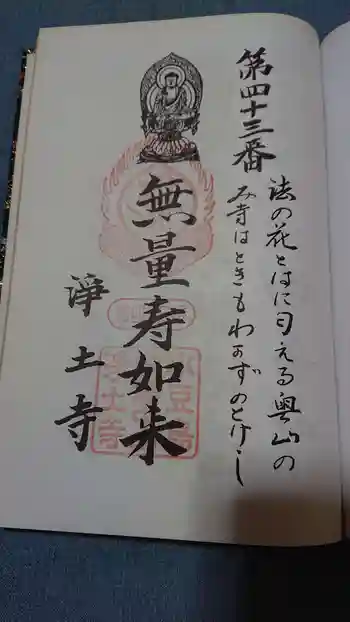 第四十三番
法の花とはに匂える奥山の
み寺はときもわかずのとけし
無量寿如来
淨土寺
小豆島
淨土寺